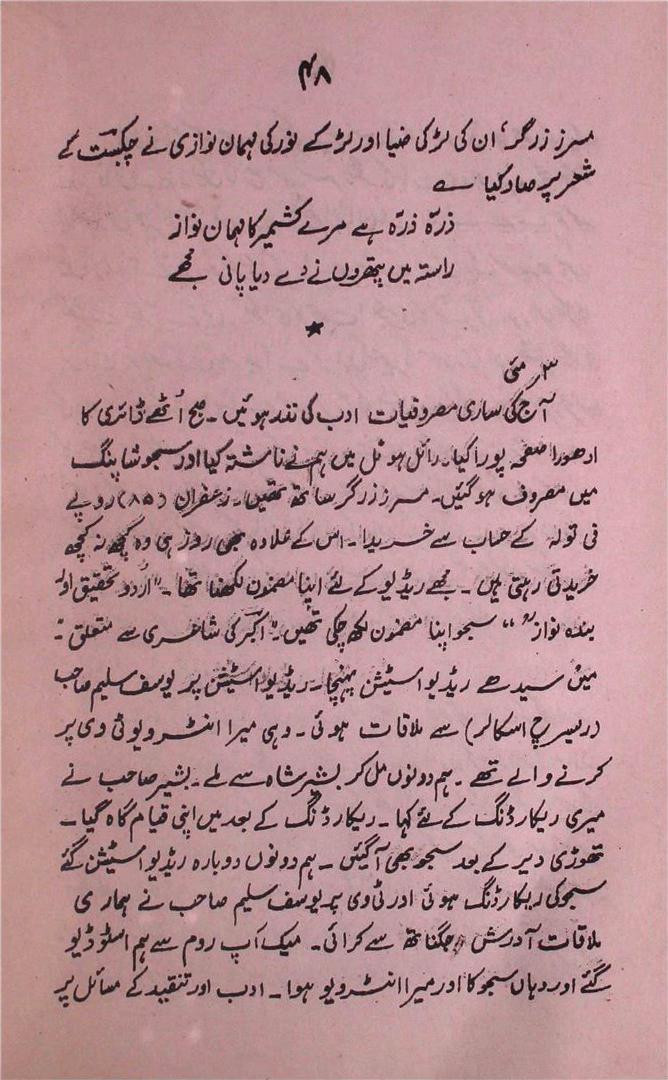 ۴۸
مسرز زرگر، ان کی لڑکی ضیا اور لڑکے نور کی مہمان نوازی نے چکبست کے
شعر پر صاد کیا ؎
ذرّہ ذرّہ ہے مرے کشمیر کا مہمان نواز
راستہ میں پتھروں نے دے دیا پانی مجھے
★
۳ مئی
آج کی ساری مصروفیات ادب کی نذر ہوئیں۔ صبح اُٹھے ڈائری کا
ادھورا صفحہ پورا کیا۔ رائل ہوٹل میں ہم نے ناشتہ کیا اور سجو شاپنگ
میں مصروف ہو گئیں۔ مسرز زرگر ساتھ تھیں۔ زعفران (۸۵) روپے
فی تولہ کے حساب سے خریدا۔ اس کے علاوہ بھی روز ہی وہ کچھ نہ کچھ
خریدتی رہتی ہیں۔ مجھے ریڈیو کے لئے اپنا مضمون لکھنا تھا۔ "اُردو تحقیق اور
بندہ نواز" سجو اپنا مضمون لکھ چکی تھیں۔ "اکبر کی شاعری سے متعلق"۔
میں سیدھے ریڈیو اسٹیشن پہنچا۔ ریڈیو اسٹیشن پر یوسف سلیم صاحب
(ریسرچ اسکالر) سے ملاقات ہوئی۔ وہی میرا انٹرویو ٹی وی پر
کرنے والے تھے۔ ہم دونوں مل کر بشیر شاہ سے ملے۔ بشیر صاحب نے
میری ریکارڈنگ کے لئے کہا۔ ریکارڈنگ کے بعد میں اپنی قیام گاہ گیا۔
تھوڑی دیر کے بعد سجو بھی آگئیں۔ ہم دونوں دوبارہ ریڈیو اسٹیشن گئے
سجو کی ریکارڈنگ ہوئی اور ٹی وی پر یوسف سلیم صاحب نے ہماری
ملاقات آدرش جگناتھ سے کرائی۔ میک اَپ روم سے ہم اسٹوڈیو
گئے اور وہاں سجو کا اور میرا انٹرویو ہوا۔ ادب اور تنقید کے مسائل پر